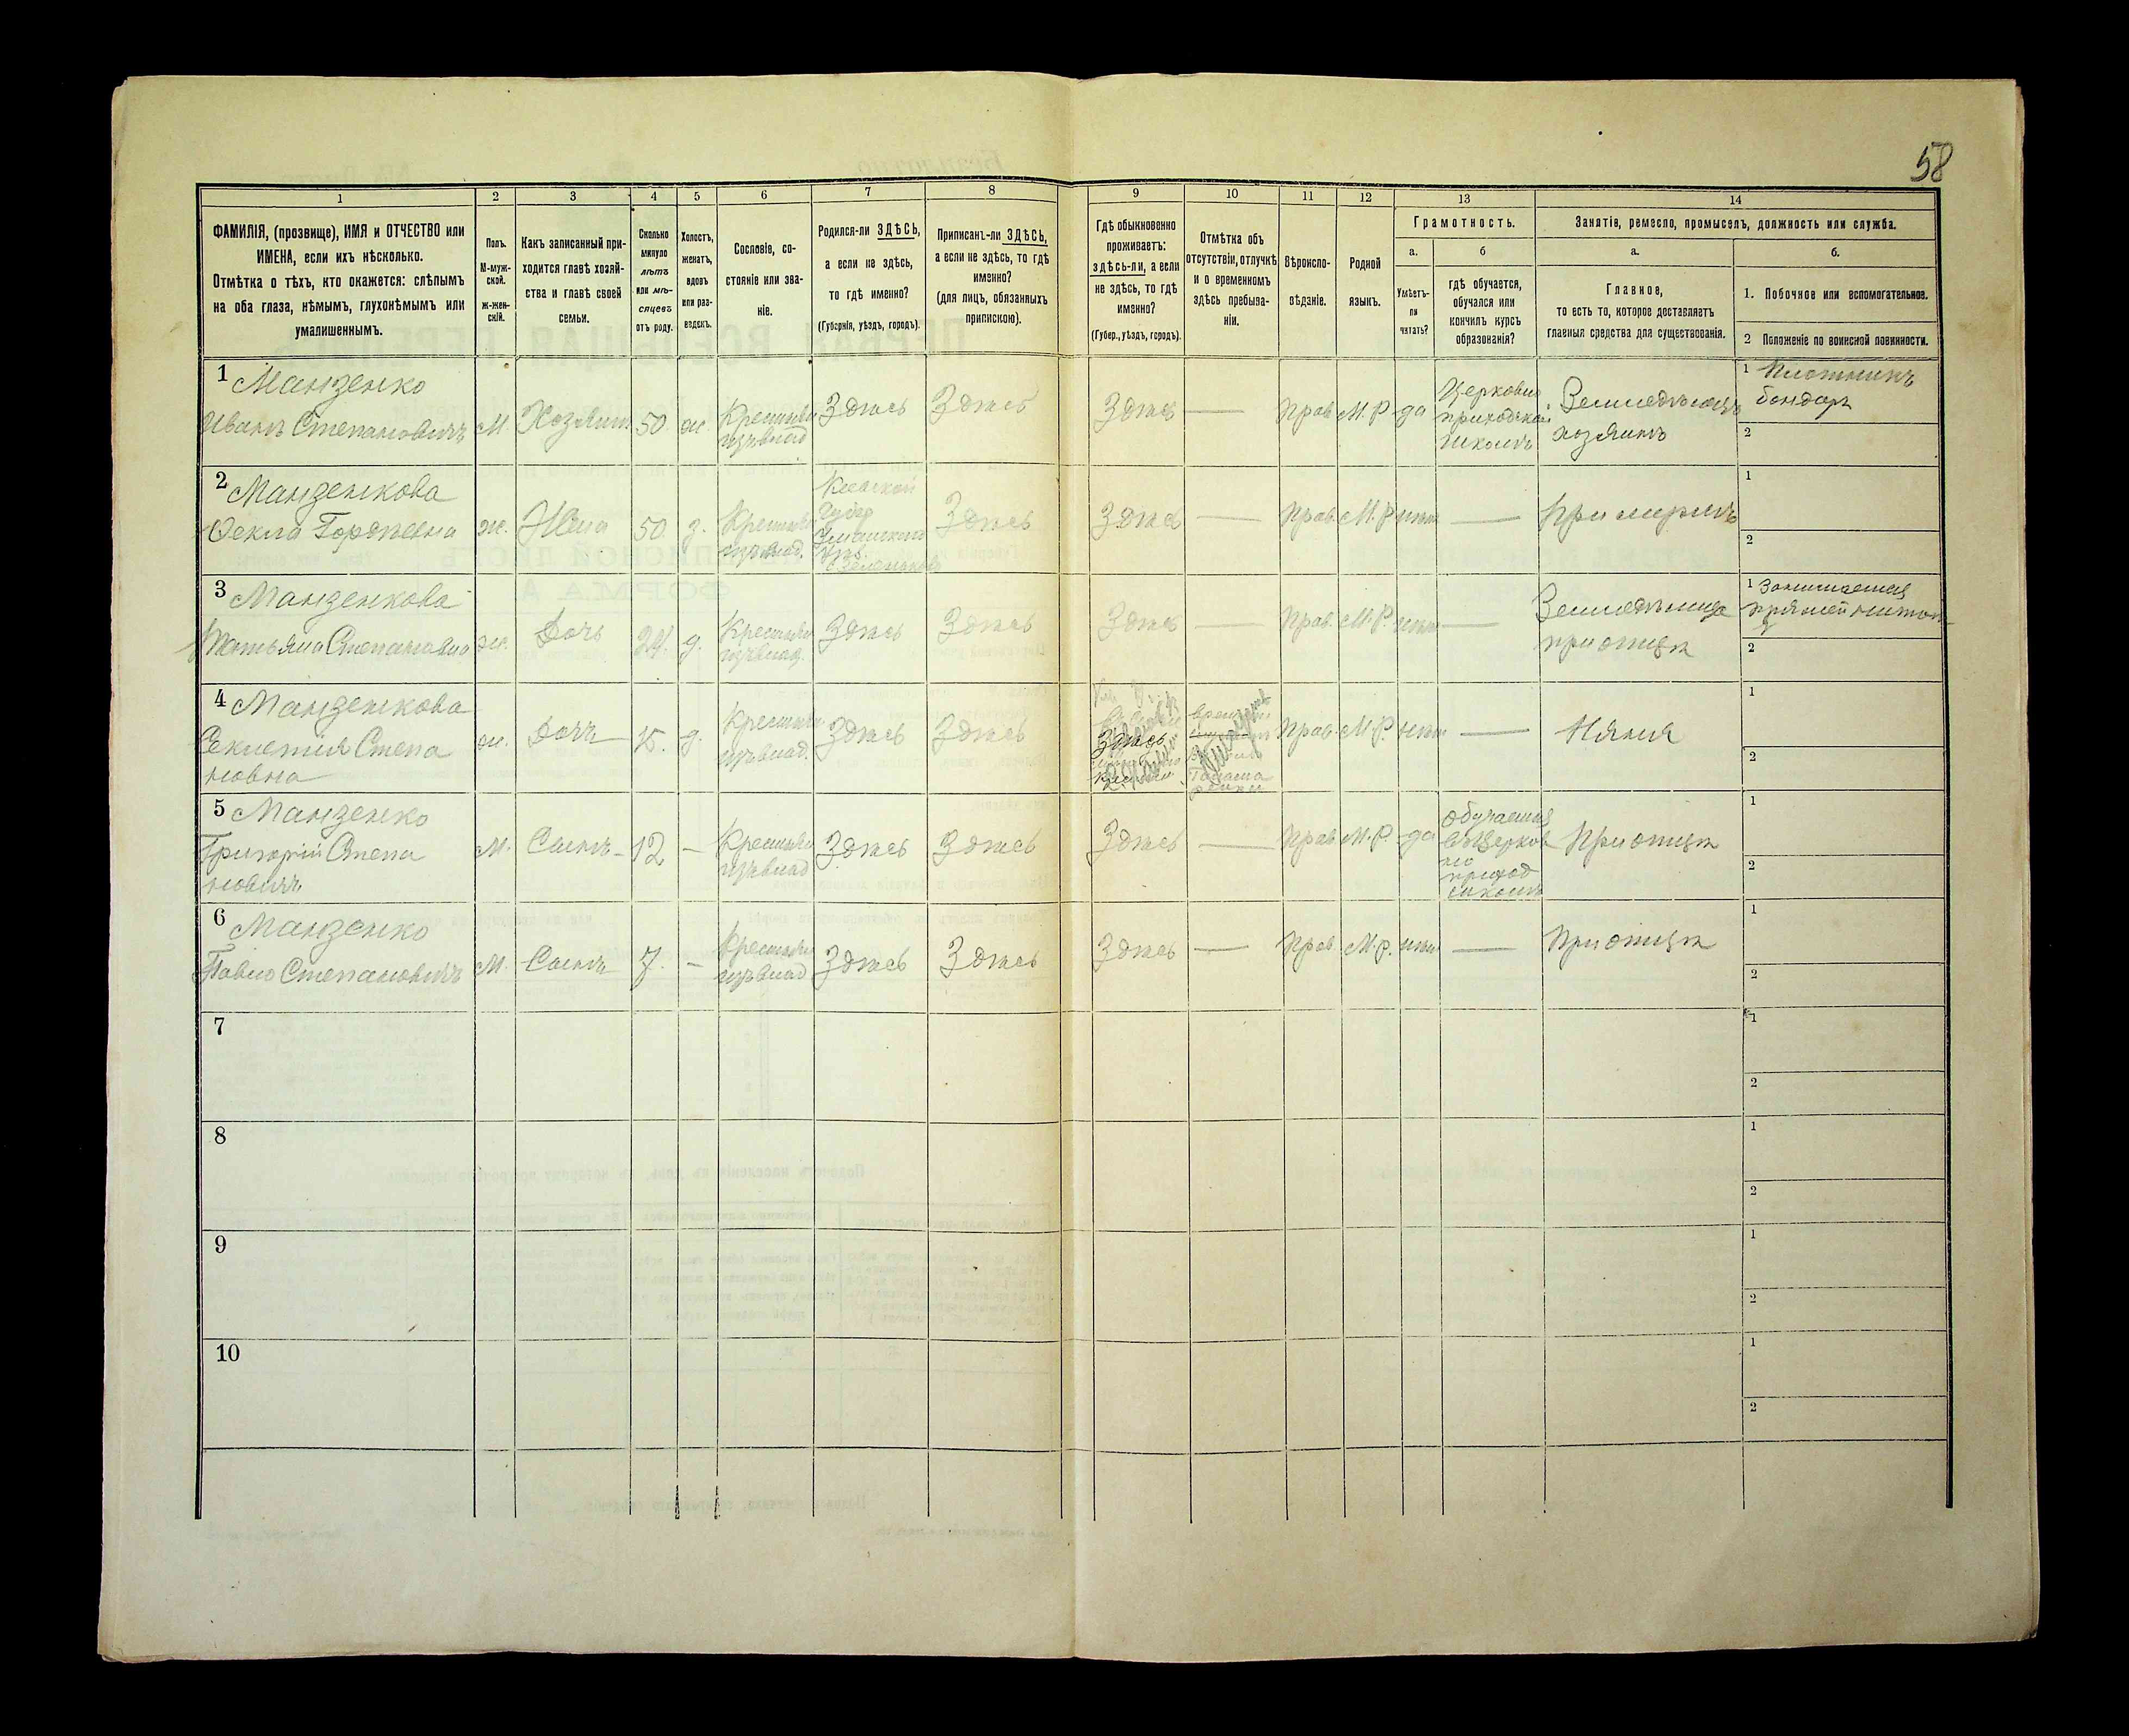 58
1
2
3
4
5
6
7
8
9
10
11
12
13
14
ФАМИЛІЯ, (прозвище), ИМЯ и ОТЧЕСТВО или
ИМЕНА, если ихъ нѣсколько.
Отмѣтка о тѣхъ, кто окажется: слѣпымъ
на оба глаза, нѣмымъ, глухонѣмымъ или
умалишеннымъ.
Полъ.
М-муж-
ской.
ж-жен-
скій.
Какъ записанный при-
ходится главѣ хозяй-
ства и главѣ своей
семьи.
Сколько
минуло
лѣтъ
или мѣ-
сяцевъ
отъ роду.
Холостъ,
женатъ,
вдовъ
или раз-
веденъ.
Сословіе, со-
стояніе или зва-
ніе.
Родился-ли ЗДѢСЬ,
а если не здѣсь,
то гдѣ именно?
(Губернія, уѣздъ, городъ).
Приписанъ-ли ЗДѢСЬ,
а если не здѣсь, то гдѣ
именно?
(для лицъ, обязанныхъ
припискою).
Гдѣ обыкновенно
проживаетъ:
здѣсь-ли, а если
не здѣсь, то гдѣ
именно?
(Губер., уѣздъ, городъ).
Отмѣтка объ
отсутствіи, отлучкѣ
и о временномъ
здѣсь пребыва-
ніи.
Вѣроиспо-
вѣданіе.
Родной
языкъ.
Грамотность.
а.
Умѣетъ-
ли
читать?
б
гдѣ обучается,
обучался или
кончилъ курсъ
образованія?
Занятіе, ремесло, промыселъ, должность или служба.
а.
Главное,
то есть то, которое доставляетъ
главныя средства для существованія.
б.
1. Побочное или вспомогательное.
2 Положеніе по воинской повинности.
1 Манзенко
Иванъ Степановичъ
М.
Хозяинъ
50
ж.
Крестьян
изъ влад
Здѣсь
Здѣсь
Здѣсь
—
Прав
М.Р
да
Церковно
приходской
школѣ
Земледѣлецъ
хозяинъ
1 Плотникъ
бондарь
2
2 Манзенкова
Фекла Гордѣевна
ж.
Жена
50
з.
Крестьян
изъ влад.
Кіевской
Губер
Уманскаго
уѣз.
Здѣсь
Здѣсь
—
Прав.
М.Р
нѣтъ
—
При мужѣ
1
2
3 Манзенкова
Татьяна Степановна
ж.
Дочь
24.
д.
Крестьян
изъ влад.
Здѣсь
Здѣсь
Здѣсь
—
Прав.
М.Р.
нѣтъ
—
Земледѣлица
при отцѣ
1 Занимается
пряжей нитокъ
2
4 Манзенкова
Степа
новна
ж.
Дочь
15.
д.
Крестьян
изъ влад.
Здѣсь
Здѣсь
Здѣсь
Прав
М.Р
нѣтъ
—
Няня
1
2
5 Манзенко
Григорій Степа
новичъ
М.
Сынъ
12
—
Крестьян
изъ влад
Здѣсь
Здѣсь
Здѣсь
—
Прав
М.Р.
да
Обучается
въ Церков
но
приход
школѣ
При отцѣ
1
2
6 Манзенко
Павло Степановичъ
М.
Сынъ
7.
—
Крестьян
изъ влад
Здѣсь
Здѣсь
Здѣсь
—
Прав
М.Р.
нѣтъ
—
При отцѣ
1
2
7
1
2
8
1
2
9
1
2
10
1
2